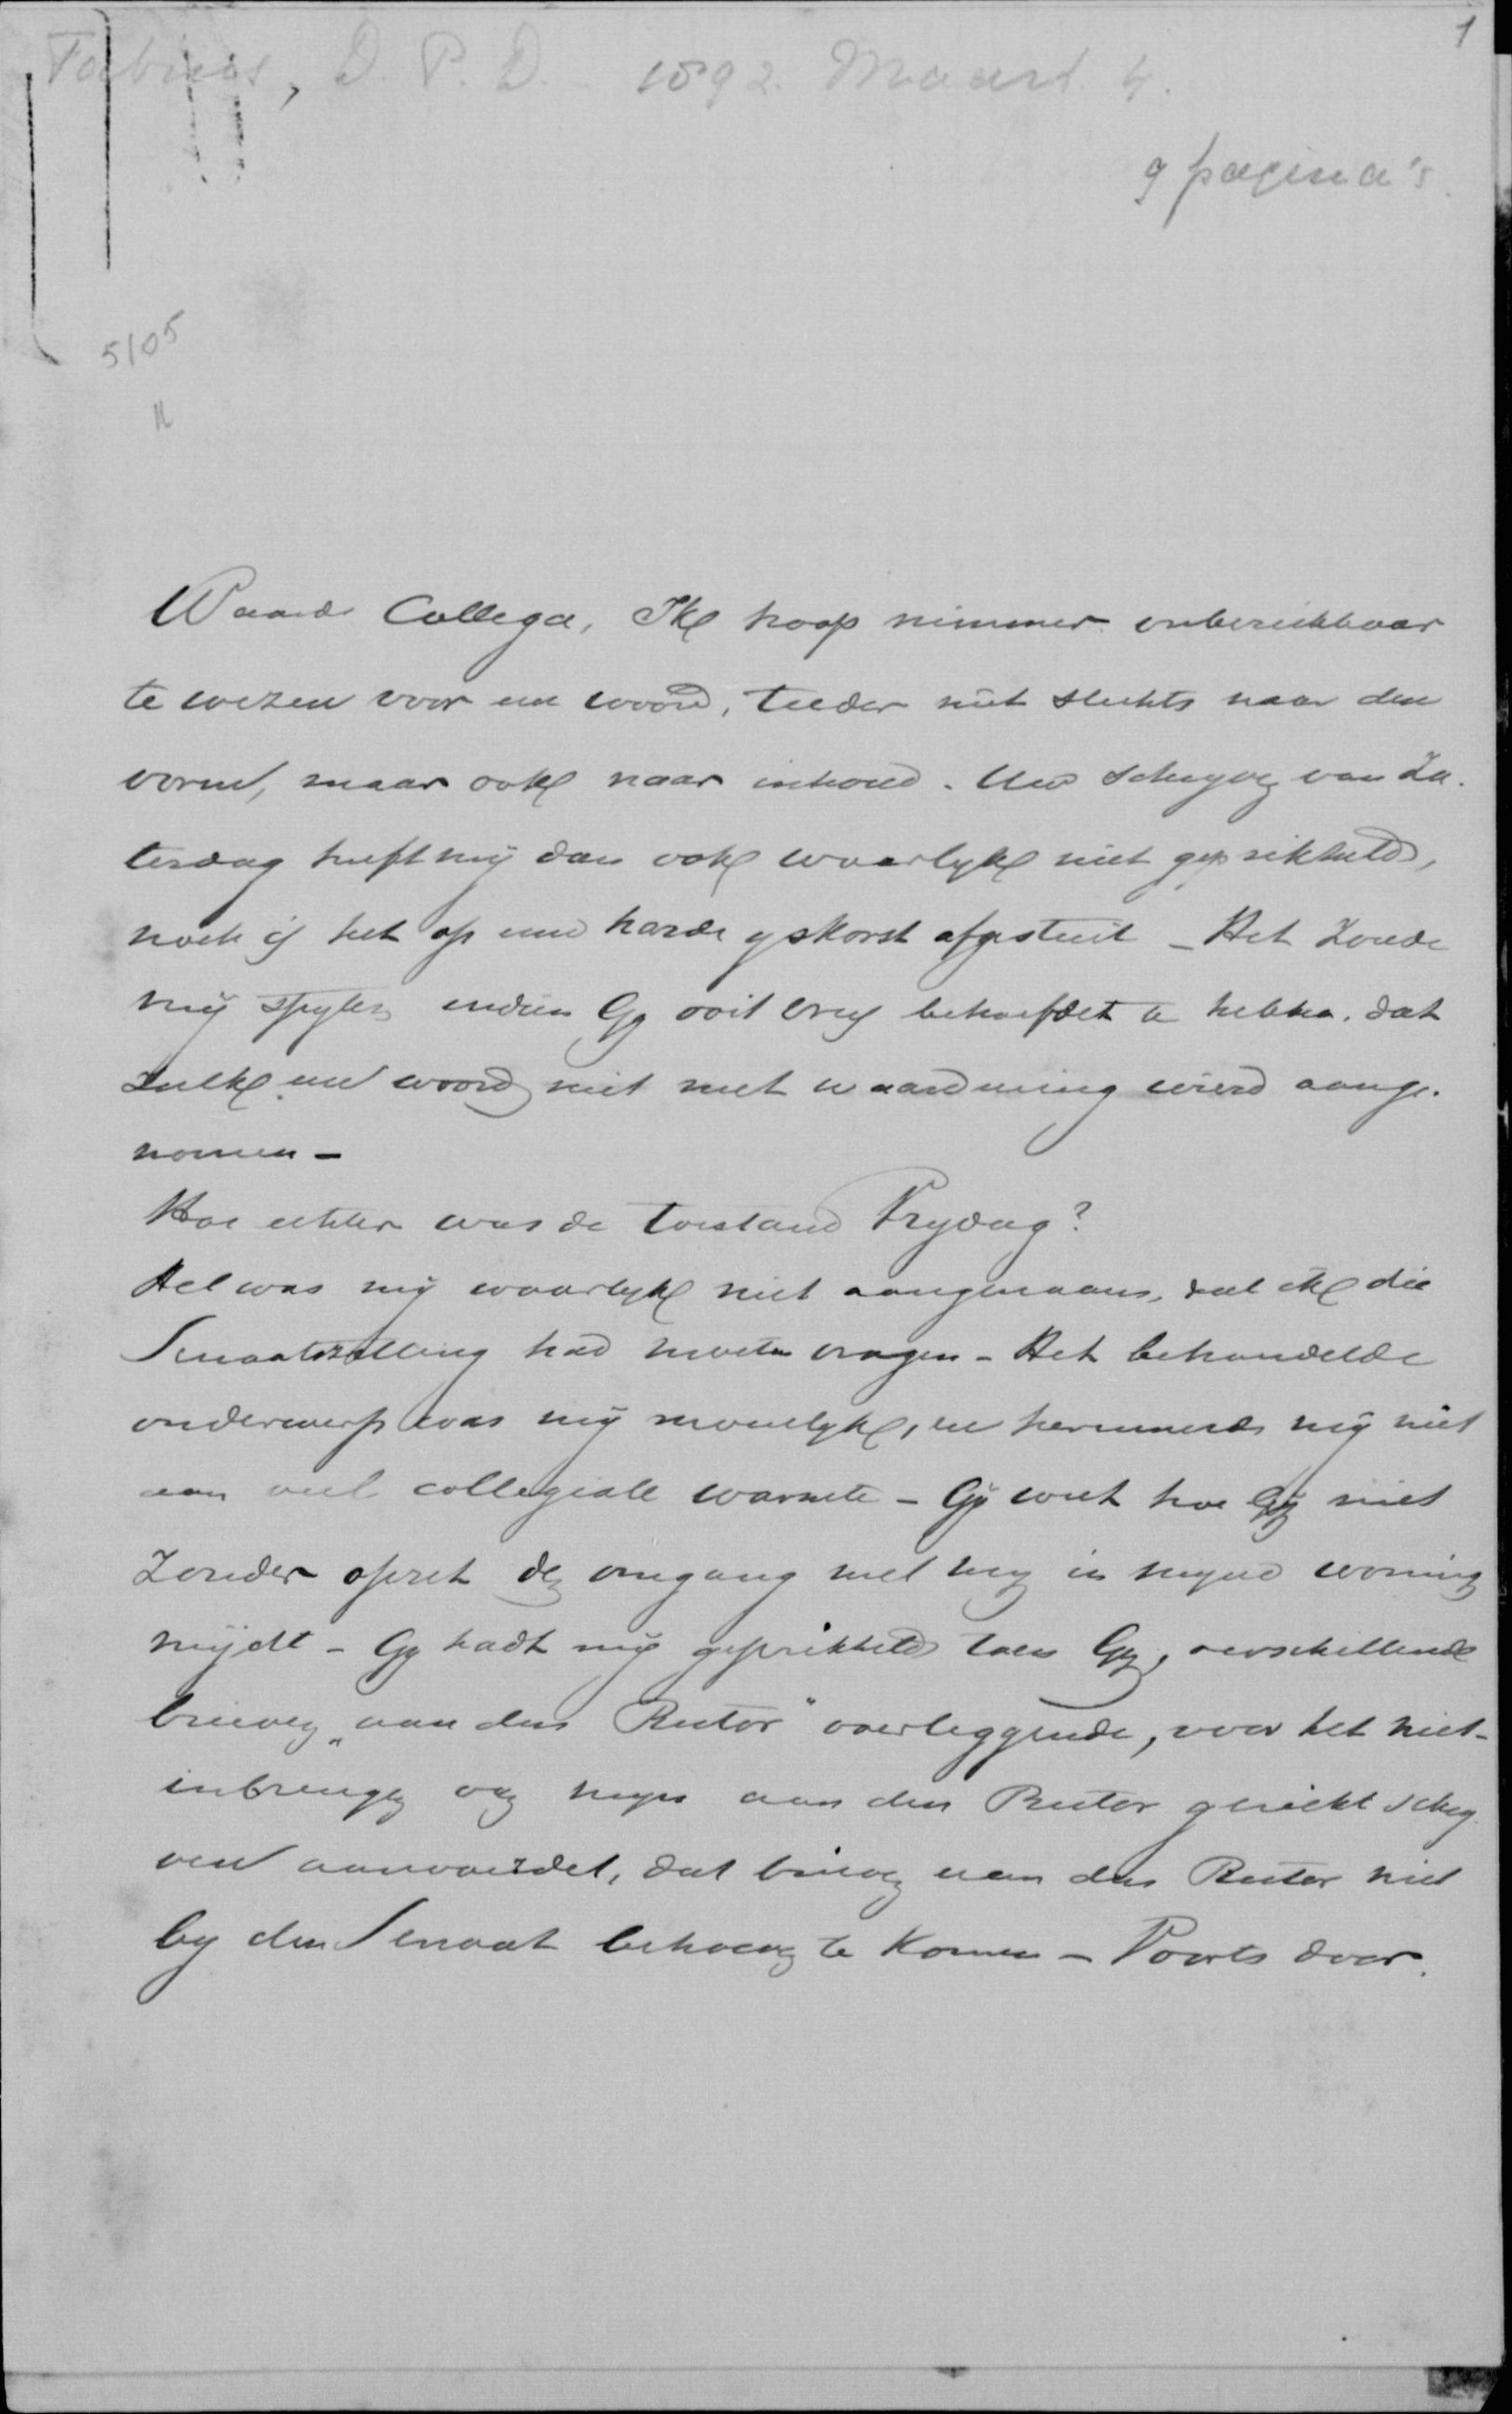 1
Fabius, D. P. D. 1892. Maart 4.
9 pagina's.
5105
Waarde Collega, Ik hoop nimmer onbereikbaar
te wezen voor een woord, teeder niet slechts naar den
vorm, maar ook naar inhoud. Uw schryven van Za-
terdag heeft mij dan ook waarlyk niet geprikkeld,
noch is het op eene harde yskorst afgestuit – Het zoude
mij spyten indien Gy ooit vrees behoefdet te hebben, dat
zulk een woord niet met waardeering wierd aange-
nomen –
Hoe echter was de toestand Vrydag?
Het was mij waarlyk niet aangenaam, dat ik die
Senaatszitting had moeten vragen – Het behandelde
onderwerp was mij moeielyk, en herinnerde mij niet
aan veel collegiale warmte – Gij weet hoe Gij niet
zonder opzet den omgang met mij in mijne woning
mijdt – Gy hadt mij geprikkeld toen Gy, verschillende
brieven „aan den Rector" overleggende, voor het niet-
inbrengen van myn aan den Rector gericht schry-
ven aanvoerdet, dat brieven aan den Rector niet
by den Senaat behoeven te komen – Voorts door